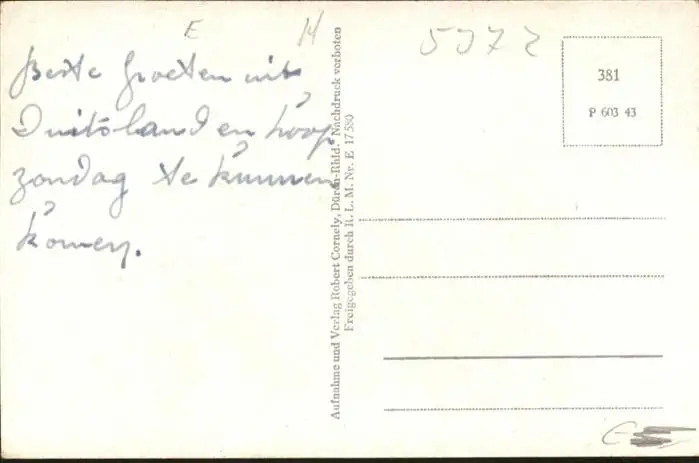 E
H
5972
Beste Groeten uit
Duitsland en hoop
zondag te kunnen
komen.
Aufnahme und Verlag Robert Cornely, Düren-Rhld. Nachdruck verboten
Freigegeben durch R. L. M. Nr. E 17580
381
P 603 43